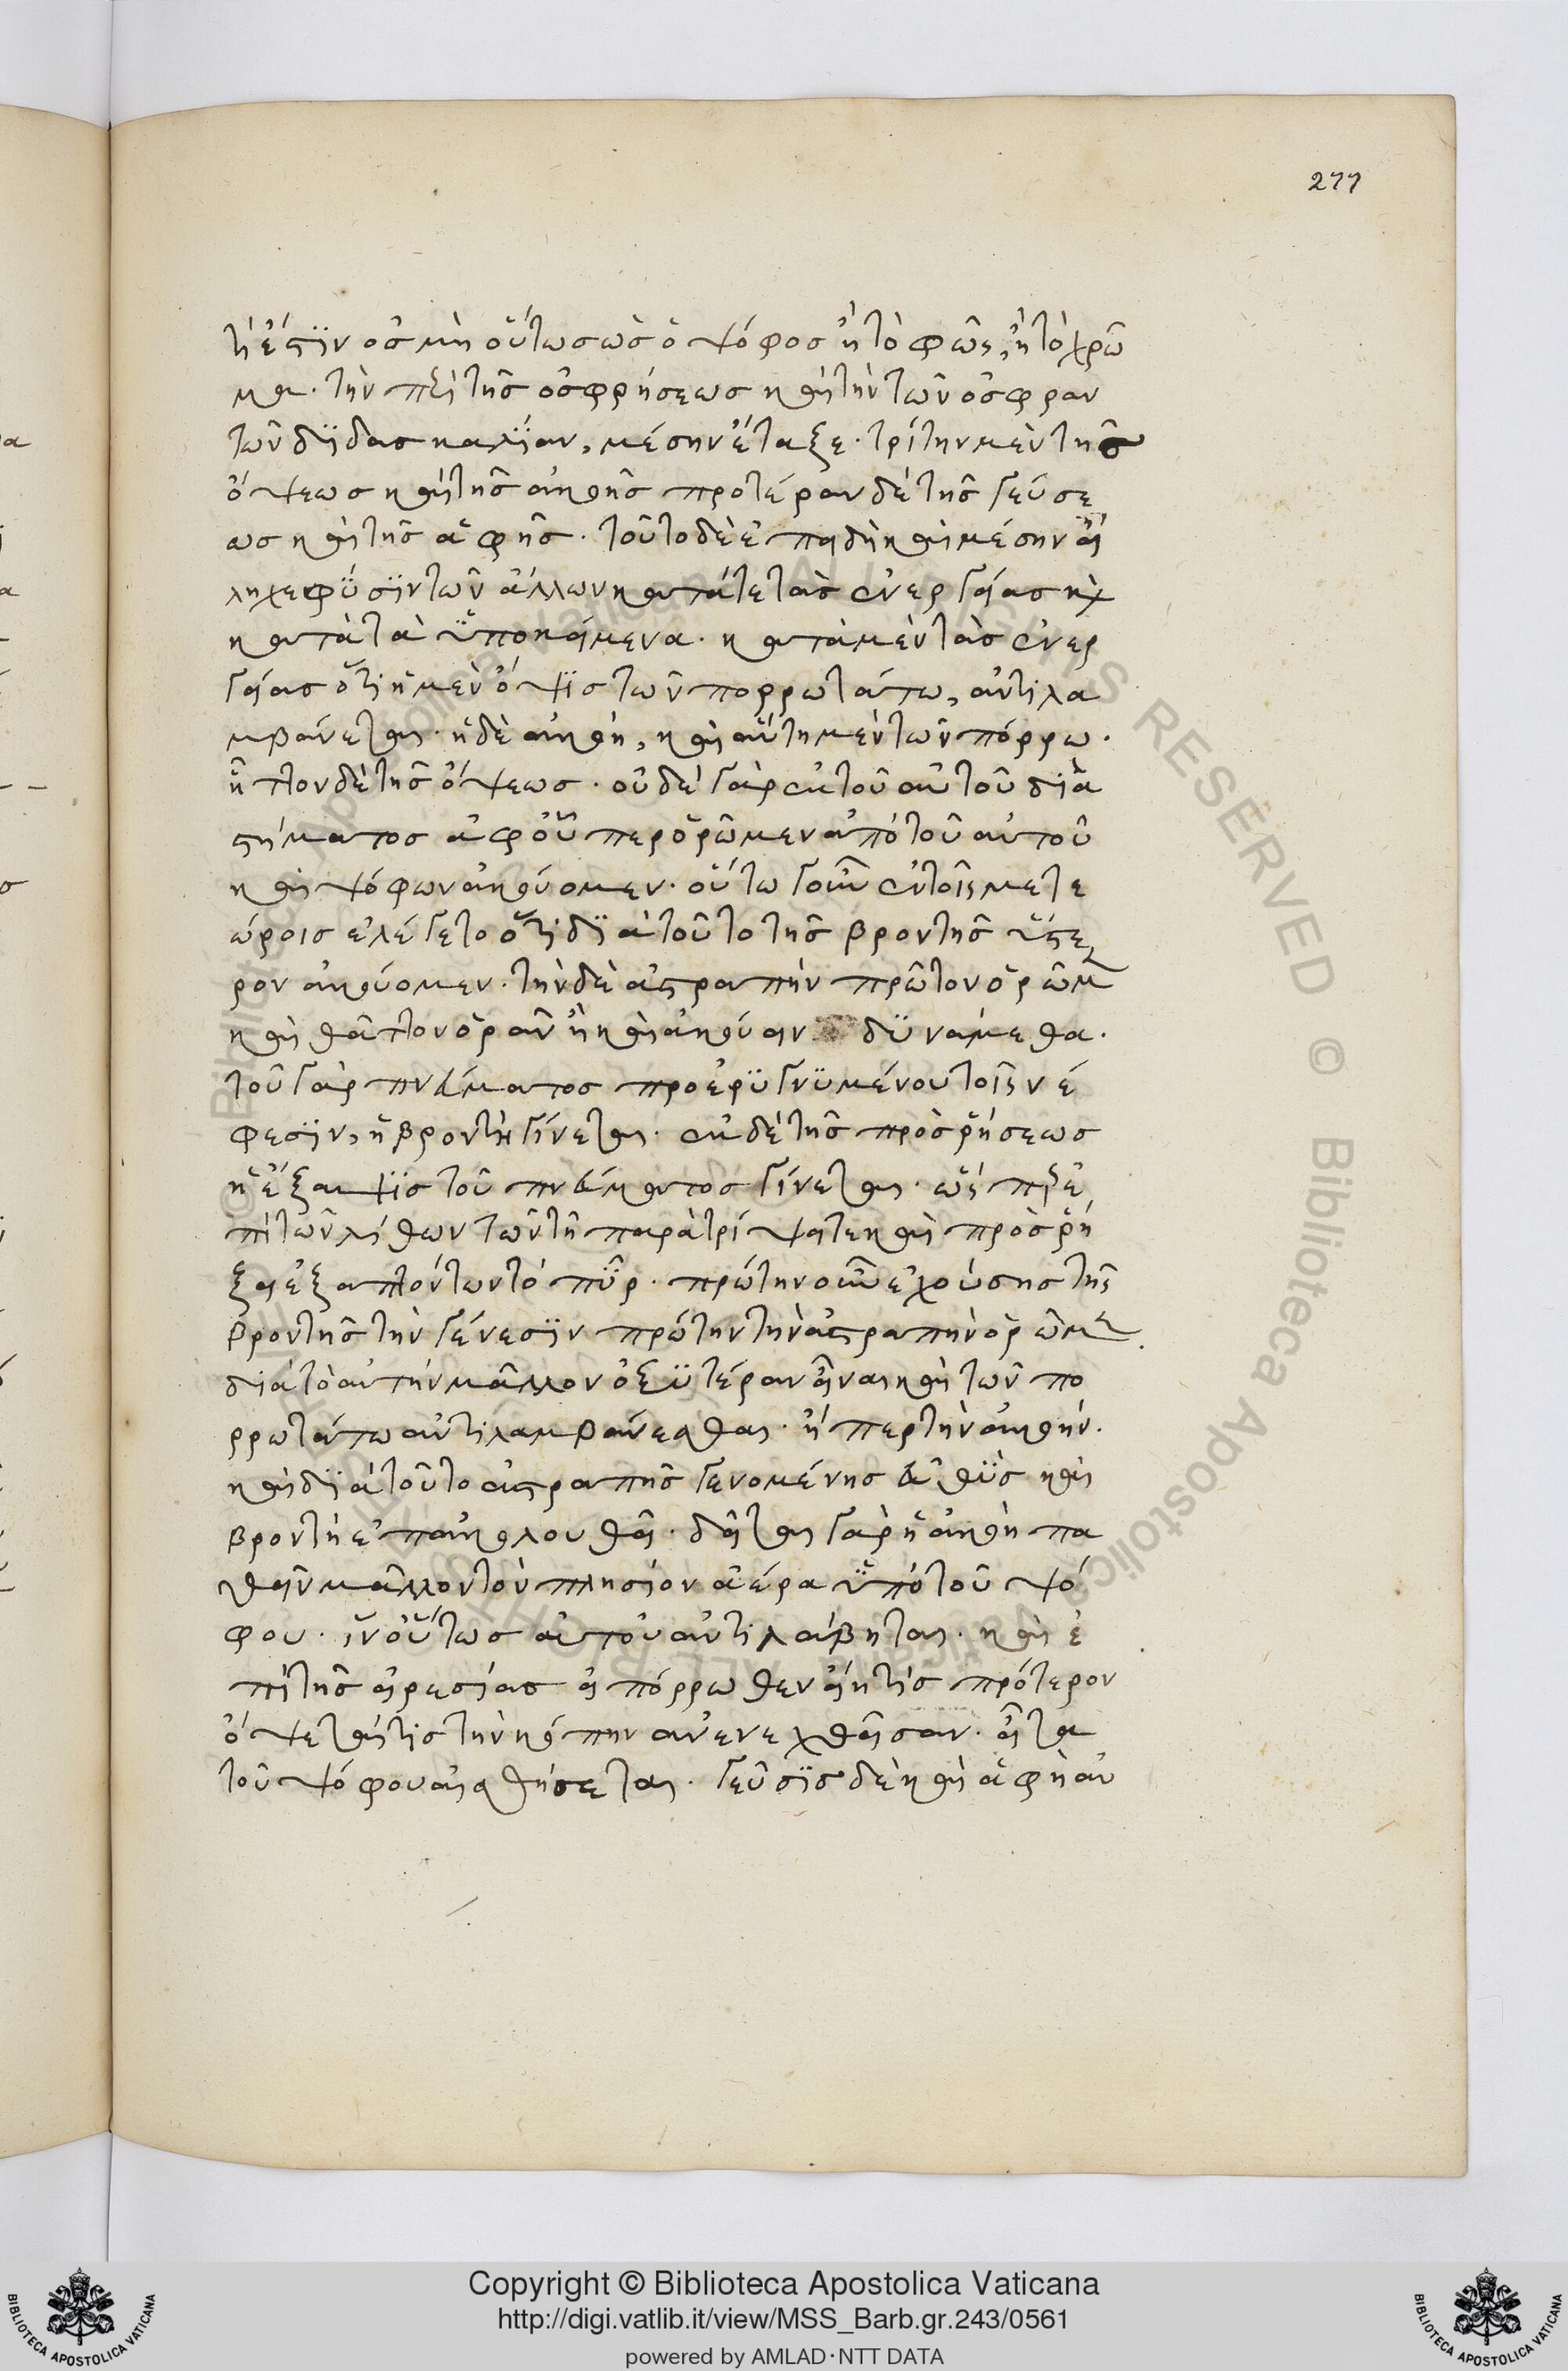 277
τί ἐστιν ὀσμὴ οὕτως ὡς ὁ ψόφος ἢ τὸ φῶς, ἢ τὸ χρῶ
μα. τὴν περὶ τῆς ὀσφρήσεως καὶ τὴν τῶν ὀσφραν
τῶν διδασκαλίαν, μέσην ἔταξε. τρίτην μὲν τῆς
ὄψεως καὶ τῆς ἀκοῆς προτέραν δὲ τῆς γεύσε
ως καὶ τῆς ἁφῆς. τοῦτο δὲ ἐπειδὴ καὶ μέσην εἴ
ληχε φύσιν τῶν ἄλλων κατά τε τὰς ἐνεργείας καὶ
κατὰ τὰ ὑποκείμενα. κατὰ μὲν τὰς ἐνερ
γείας ὅτι ἡ μὲν ὄψις τῶν πορρωτάτω, ἀντιλα
μβάνεται. ἡ δὲ ἀκοὴ, καὶ αὕτη μὲν τῶν πόρρω.
ἧττον δὲ τῆς ὄψεως. οὐδὲ γὰρ ἐκ τοῦ αὐτοῦ δια
στήματος ἀφ' οὗπερ ὁρῶμεν ἀπὸ τοῦ αὐτοῦ
καὶ ψόφων ἀκούομεν. οὕτω γοῦν ἐν τοῖς μετε
ώροις ἐλέγετο ὅτι διὰ τοῦτο τῆς βροντῆς ὕστε
ρον ἀκούομεν. τὴν δὲ ἀστραπὴν πρῶτον ὁρῶμεν
καὶ θᾶττον ὁρᾶν ἢ καὶ ἀκούειν δυνάμεθα.
τοῦ γὰρ πνεύματος προερυγνυμένου τοῖς νέ
φεσιν, ἡ βροντὴ γίνεται. ἐκ δὲ τῆς προσρήσεως
ἡ ἔξαψις τοῦ πνεύματος γίνεται. ὥσπερ ἐ
πὶ τῶν λίθων τῶν τῇ παρατρίψει τε καὶ προσρή
ξει ἐξαπτόντων τὸ πῦρ. πρώτην οὖν ἐχούσης τῆς
βροντῆς τὴν γένεσιν πρώτην τὴν ἀστραπὴν ὁρῶμεν.
διὰ τὸ αὐτὴν μᾶλλον ὀξυτέραν εἶναι καὶ τῶν πο
ρρωτάτω ἀντιλαμβάνεσθαι. ἤπερ τὴν ἀκοήν.
καὶ διὰ τοῦτο ἀστραπῆς γενομένης εὐθὺς καὶ
βροντὴ ἐπακολουθεῖ. δεῖται γὰρ ἡ ἀκοὴ πα
θεῖν μᾶλλον τὸν πλησίον ἀέρα ὑπὸ τοῦ ψό
φου. ἵν' οὕτως αὐτοῦ ἀντιλάβηται. καὶ ἐ
πὶ τῆς εἰρεσίας εἰ πόρρωθεν εἴη τὶς πρότερον
ὄψεταί τις τὴν κώπην ἀνενεχθεῖσαν. εἶτα
τοῦ ψόφου αἰσθήσεται. γεῦσις δὲ καὶ ἁφὴ αὐ
Copyright © Biblioteca Apostolica Vaticana
http://digi.vatlib.it/view/MSS_Barb.gr.243/0561
powered by AMLAD·NTT DATA